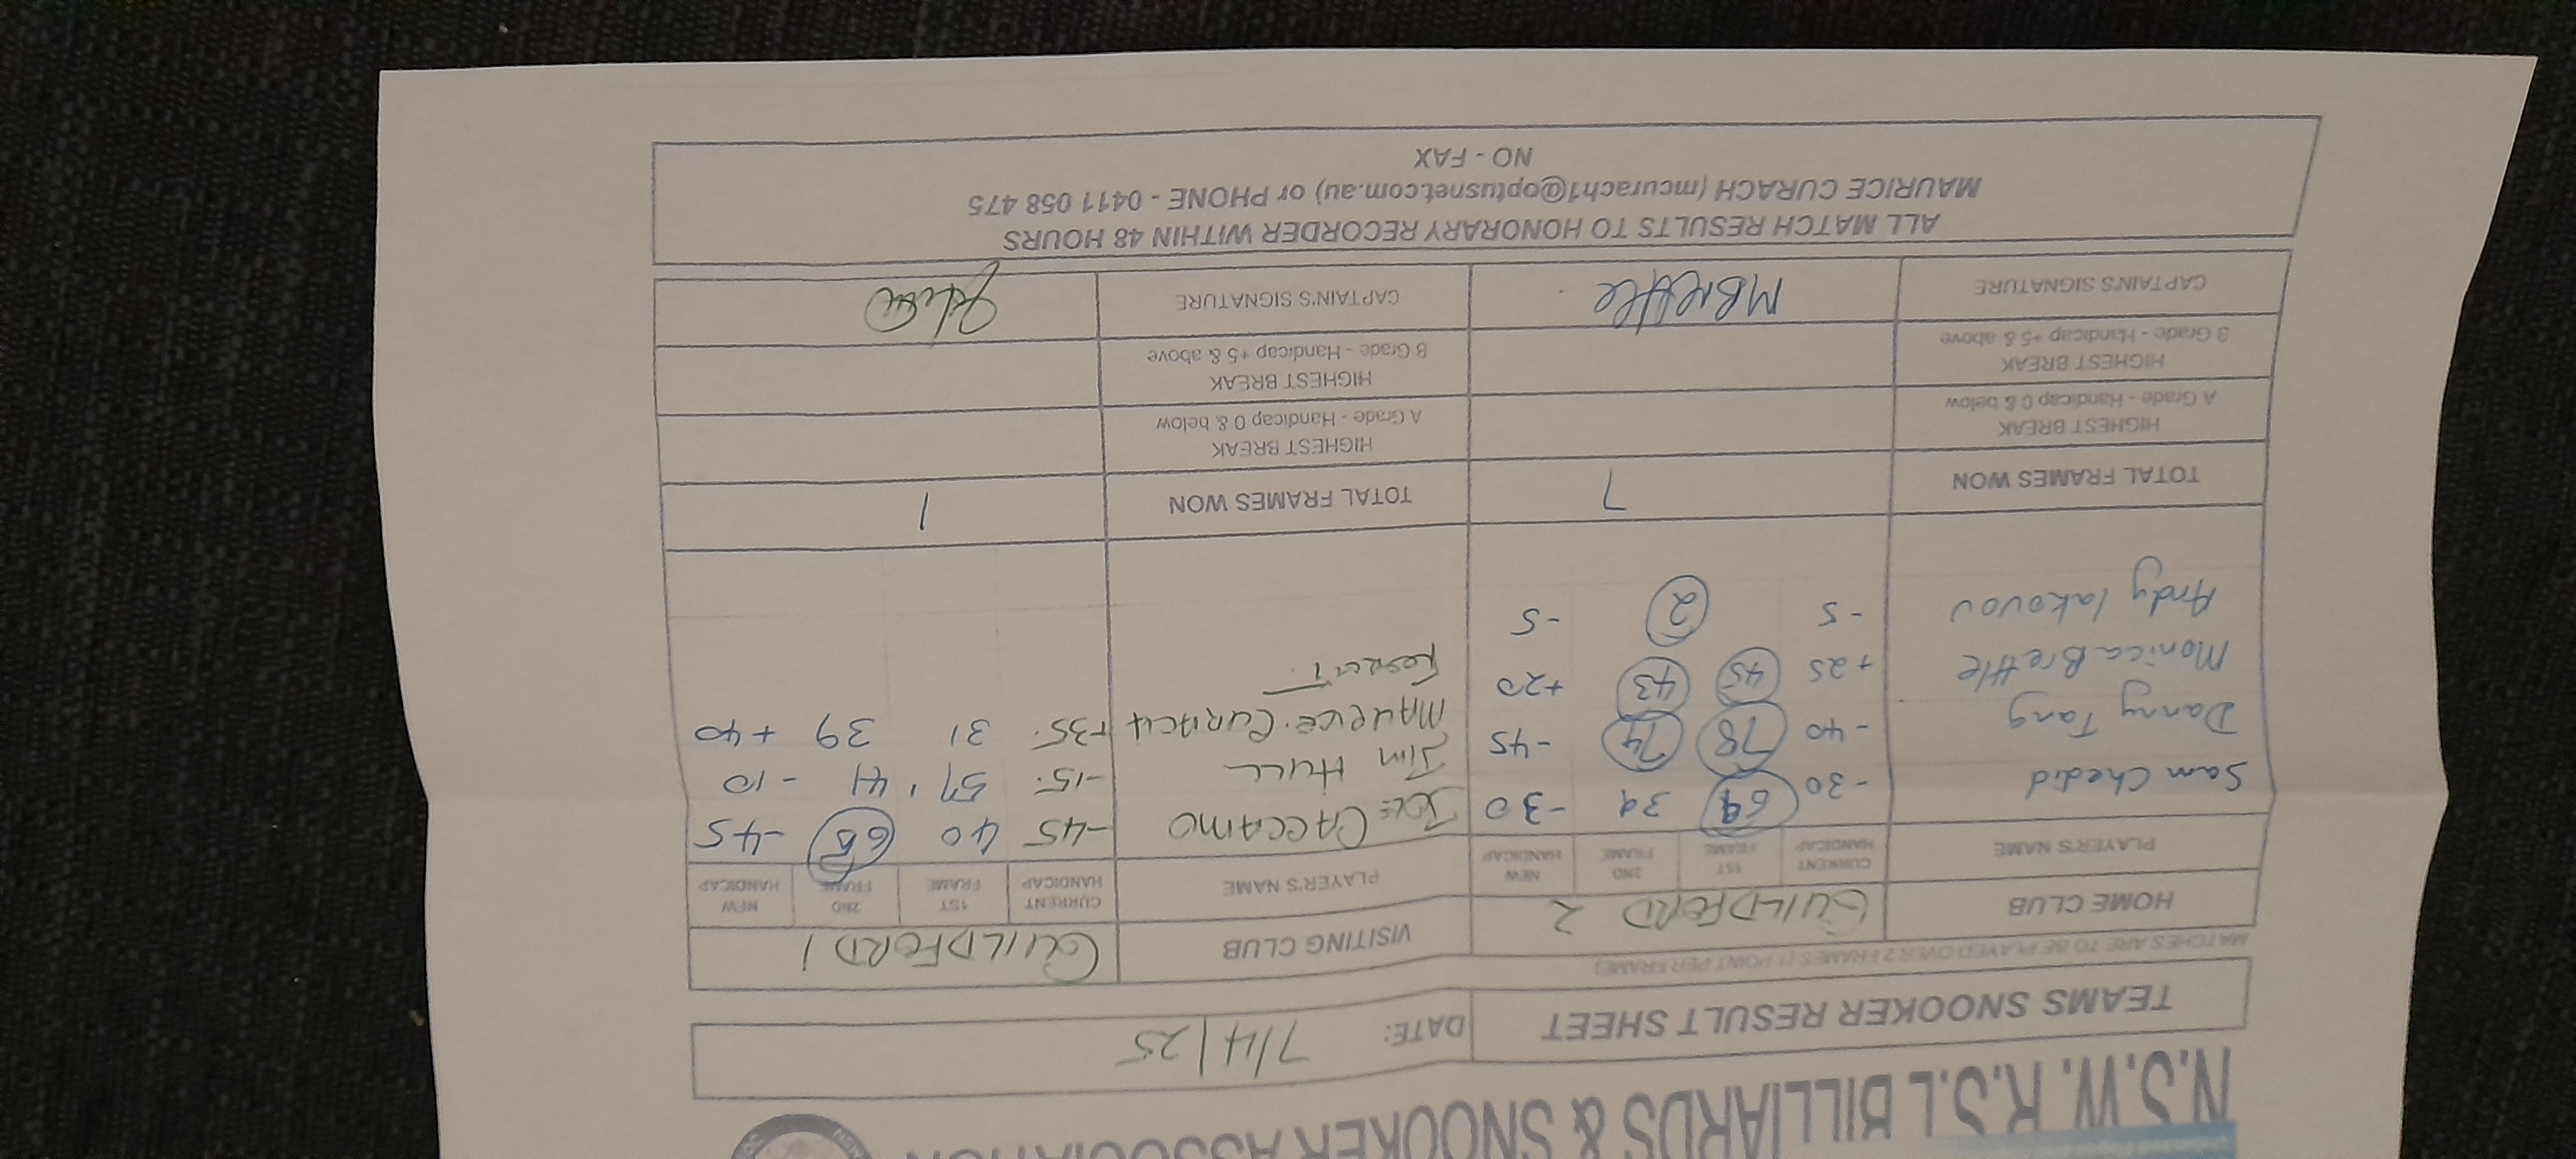 N.S.W. R.S.L BILLIARDS & SNOOKER ASSOCIATION
TEAMS SNOOKER RESULT SHEET DATE: 7/4/25
MATCHES ARE TO BE PLAYED OVER 2 FRAMES (1 POINT PER FRAME)
HOME CLUB GUILDFORD 2 VISITING CLUB GUILDFORD 1
PLAYER'S NAME CURRENT HANDICAP 1ST FRAME 2ND FRAME NEW HANDICAP PLAYER'S NAME CURRENT HANDICAP 1ST FRAME 2ND FRAME NEW HANDICAP
Sam Chedid -30 69 39 -30 JOE CACCAMO -45 40 68 -45
Danny Tang -40 78 74 -45 JIM HULL -15 57 41 -10
Monica Brettle +25 45 43 +20 MAURICE CURACH +35 31 39 +40
Andy Iakovov -5 2 -5
TOTAL FRAMES WON 7 TOTAL FRAMES WON 1
HIGHEST BREAK A Grade - Handicap 0 & below HIGHEST BREAK A Grade - Handicap 0 & below
HIGHEST BREAK B Grade - Handicap +5 & above HIGHEST BREAK B Grade - Handicap +5 & above
CAPTAIN'S SIGNATURE MBrettle CAPTAIN'S SIGNATURE
ALL MATCH RESULTS TO HONORARY RECORDER WITHIN 48 HOURS
MAURICE CURACH (mcurach1@optusnet.com.au) or PHONE - 0411 058 475
NO - FAX